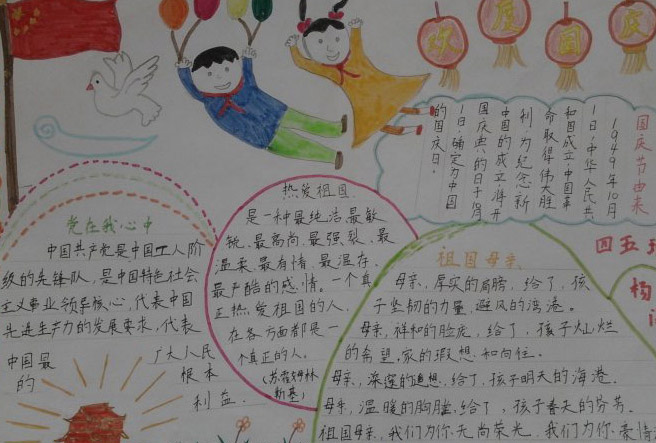 欢度国庆
国庆节由来
1949年10月
1日,中华人民共
和国成立,中国革
命取得伟大胜
利,为纪念新
中国的成立,将开
国庆典的日子10月
1日,确定为中国
的国庆日。
党在我心中
中国共产党是中国工人阶
级的先锋队,是中国特色社会
主义事业领导核心,代表中国
先进生产力的发展要求,代表
中国最广大人民
的根本
利益.
热爱祖国
是一种最纯洁、最敏
锐、最高尚、最强裂、最
温柔、最有情、最温存、
最严酷的感情。一个真
正热爱祖国的人,
在各方面都是一
个真正的人。
(苏霍姆林
斯基)
祖国母亲
母亲,厚实的肩膀,给了,孩
子坚韧的力量,避风的港湾。
母亲,祥和的脸庞,给了,孩子灿烂
的希望,家的遐想,如向往。
母亲,深邃的遐想,给了,孩子明天的海港。
母亲,温暖的胸膛,给了,孩子春天的芬芳。
祖国母亲,我们为你无尚荣光,我们为你豪情
四五班
杨